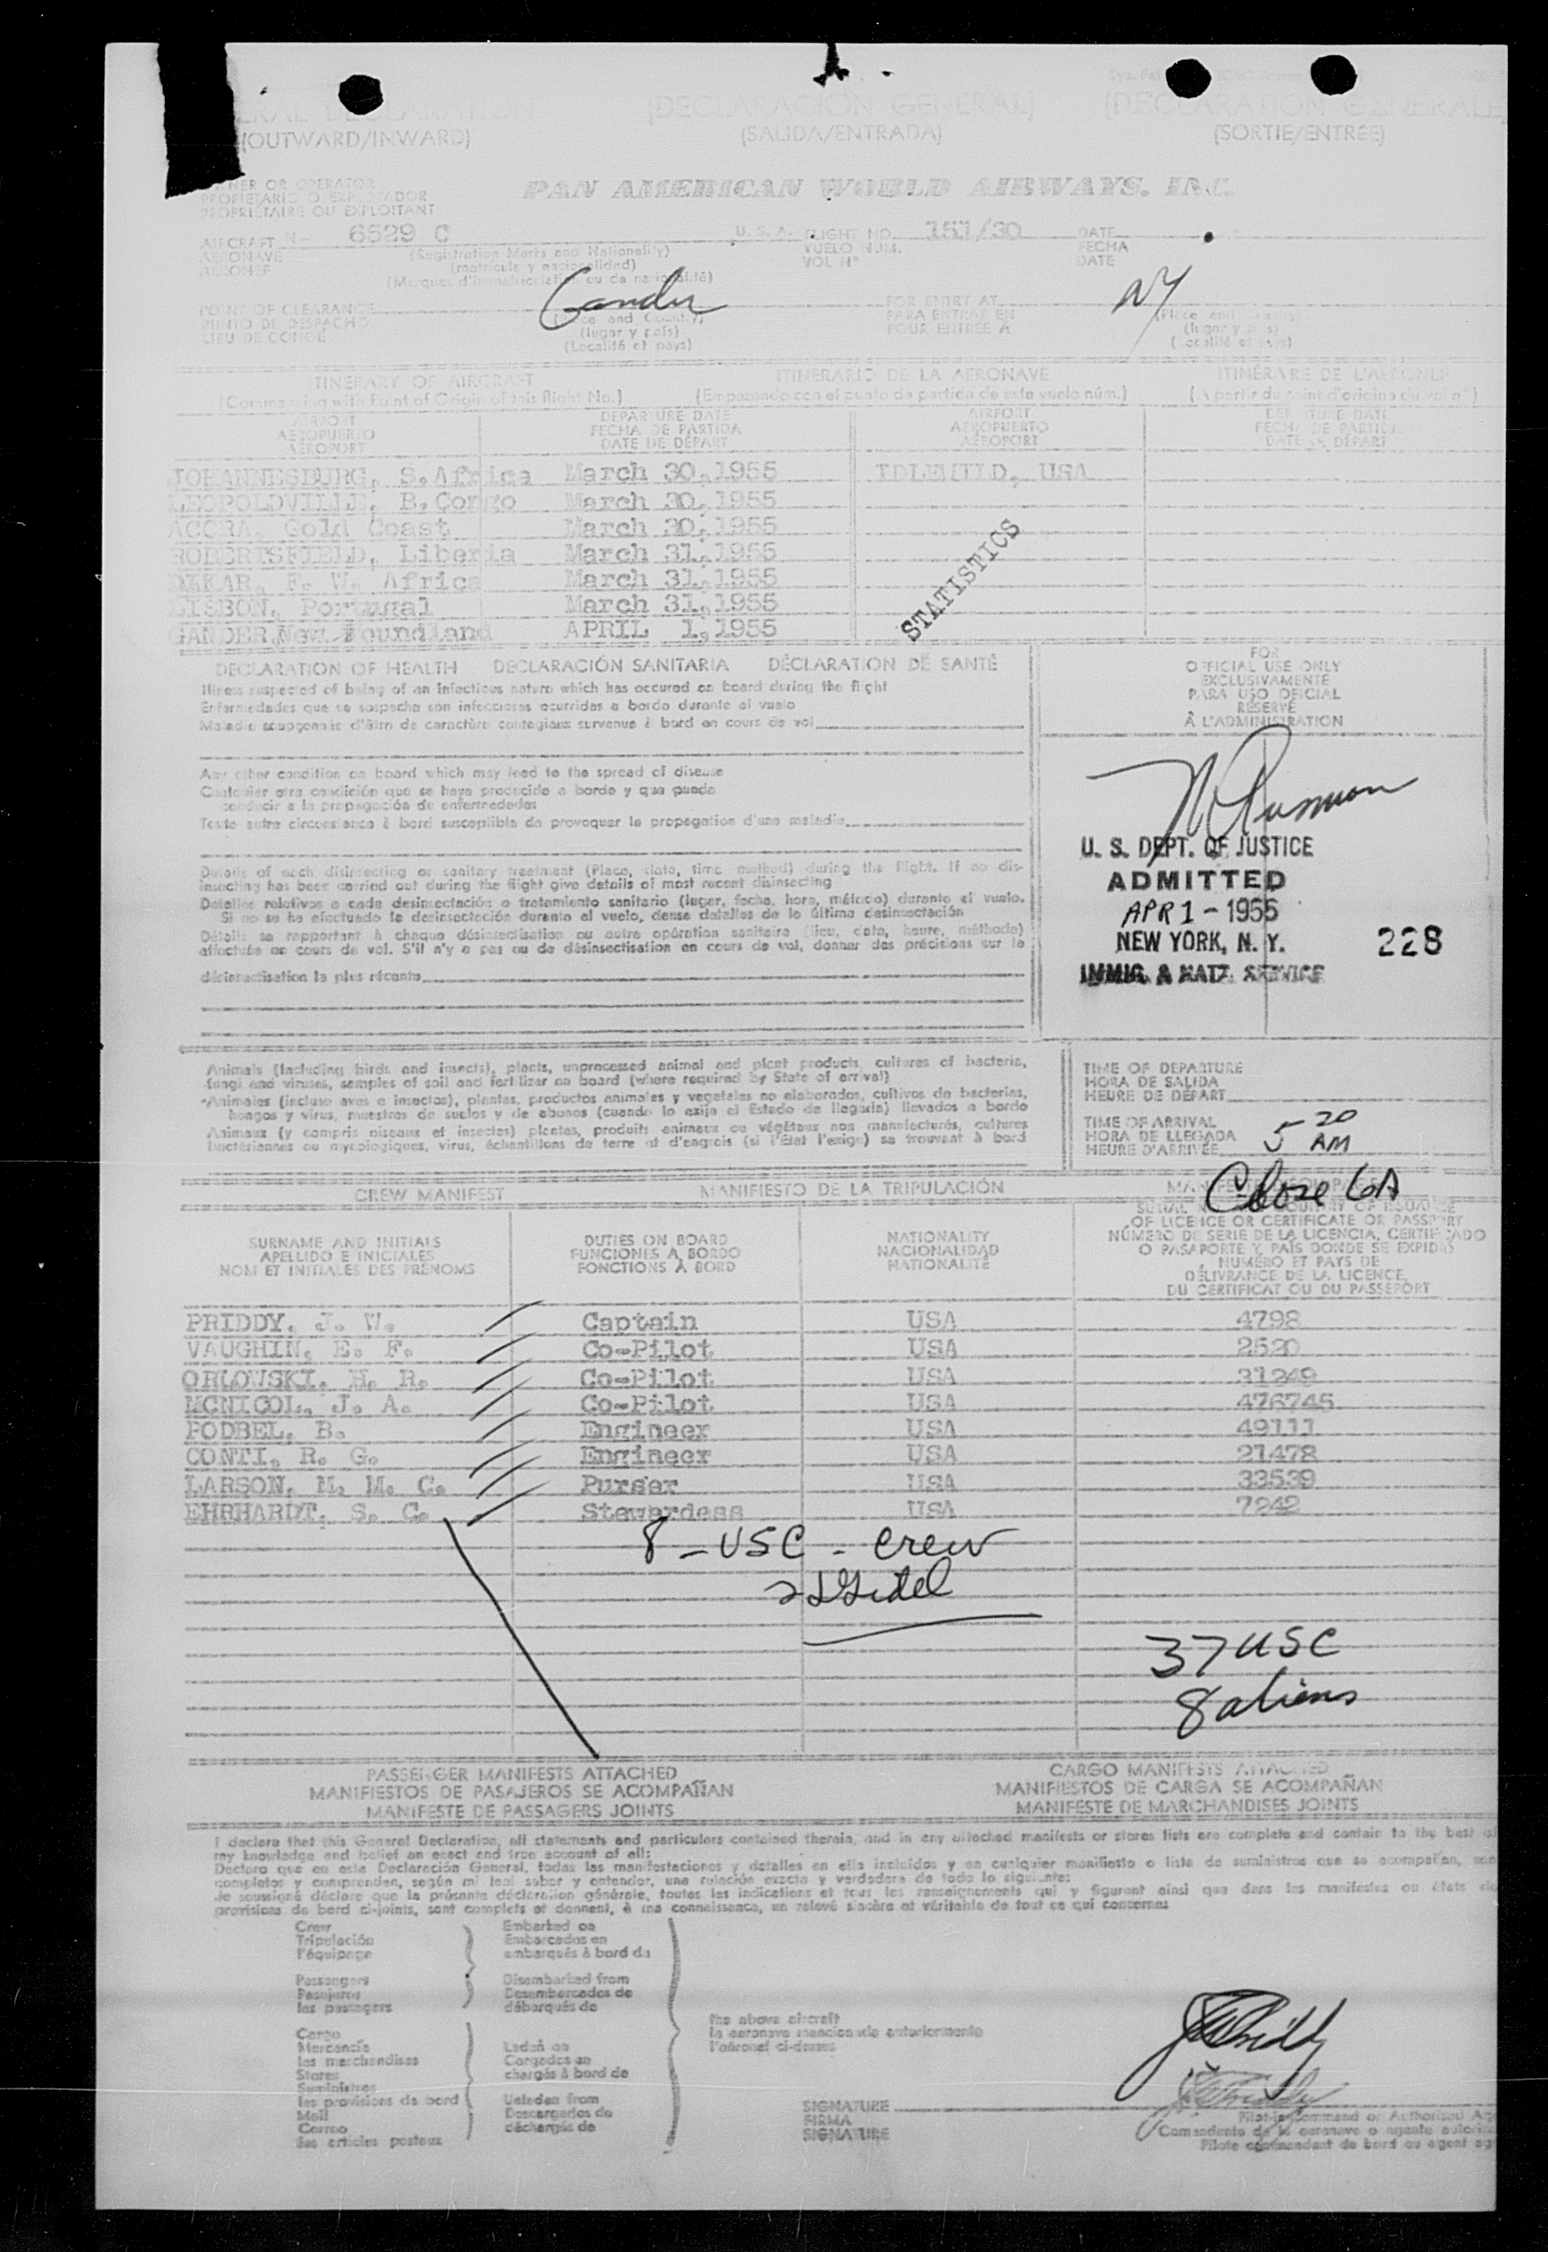 GENERAL DECLARATION [DECLARACIÓN GENERAL] [DÉCLARATION GÉNÉRALE]
(OUTWARD/INWARD) (SALIDA/ENTRADA) (SORTIE/ENTRÉE)
OWNER OR OPERATOR
PROPIETARIO O EXPLOTADOR
PROPRIÉTAIRE OU EXPLOITANT
PAN AMERICAN WORLD AIRWAYS, INC.
AIRCRAFT N- 6529 C U. S. A. FLIGHT NO. 151/30 DATE
AERONAVE (Registration Marks and Nationality) VUELO NÚM. FECHA
AÉRONEF (matrícula y nacionalidad) VOL Nº DATE
(Marques d'immatriculation ou de nationalité)
POINT OF CLEARANCE Gander FOR ENTRY AT NY
PUNTO DE DESPACHO (Place and Country) PARA ENTRAR EN (Place and Country)
LIEU DE CONGÉ (lugar y país) POUR ENTRÉE À (lugar y país)
(Localité et pays) (Localité et pays)
ITINERARY OF AIRCRAFT ITINERARIO DE LA AERONAVE ITINÉRAIRE DE L'AÉRONEF
(Commencing with Point of Origin of this flight No.) (Empezando con el punto de partida de este vuelo núm.) (À partir du point d'origine du vol nº)
AIRPORT DEPARTURE DATE AIRPORT DEPARTURE DATE
AEROPUERTO FECHA DE PARTIDA AEROPUERTO FECHA DE PARTIDA
AÉROPORT DATE DE DÉPART AÉROPORT DATE DE DÉPART
JOHANNESBURG, S.Africa March 30,1955 IDLEWILD, USA
LEOPOLDVILLE, B.Congo March 30,1955
ACCRA, Gold Coast March 30,1955
ROBERTSFIELD, Liberia March 31,1955
DAKAR, F. W. Africa March 31,1955
LISBON, Portugal March 31,1955
GANDER,New Foundland APRIL 1,1955
STATISTICS
DECLARATION OF HEALTH DECLARACIÓN SANITARIA DÉCLARATION DE SANTÉ
Illness suspected of being of an infectious nature which has occured on board during the flight
Enfermedades que se sospecha son infecciosas ocurridas a bordo durante el vuelo
Maladie soupçonnée d'être de caractère contagieux survenue à bord en cours de vol
FOR
OFFICIAL USE ONLY
EXCLUSIVAMENTE
PARA USO OFICIAL
RÉSERVÉ
À L'ADMINISTRATION
Any other condition on board which may lead to the spread of disease
Cualquier otra condición que se haya producido a bordo y que pueda
conducir a la propagación de enfermedades
Toute autre circonstance à bord susceptible de provoquer la propagation d'une maladie
Details of each disinsecting or sanitary treatment (Place, date, time method) during the flight. If no dis-
insecting has been carried out during the flight give details of most recent disinsecting
Detalles relativos a cada desinsectación o tratamiento sanitario (lugar, fecha, hora, método) durante el vuelo.
Si no se ha efectuado la desinsectación durante el vuelo, dense detalles de la última desinsectación
Détails se rapportant à chaque désinsectisation ou autre opération sanitaire (lieu, date, heure, méthode)
effectuée en cours de vol. S'il n'y a pas eu de désinsectisation en cours de vol, donner des précisions sur la
désinsectisation la plus récente
U. S. DEPT. OF JUSTICE
ADMITTED
APR 1 - 1955
NEW YORK, N. Y. 228
IMMIG. & NATZ. SERVICE
Animals (including birds and insects), plants, unprocessed animal and plant products, cultures of bacteria,
fungi and viruses, samples of soil and fertilizer on board (where required by State of arrival)
Animales (incluso aves e insectos), plantas, productos animales y vegetales no elaborados, cultivos de bacterias,
hongos y virus, muestras de suelos y de abonos (cuando lo exija el Estado de llegada) llevados a bordo
Animaux (y compris oiseaux et insectes) plantes, produits animaux ou végétaux non manufacturés, cultures
bactériennes ou mycologiques, virus, échantillons de terre et d'engrais (si l'État l'exige) se trouvant à bord
TIME OF DEPARTURE
HORA DE SALIDA
HEURE DE DÉPART
TIME OF ARRIVAL
HORA DE LLEGADA
HEURE D'ARRIVÉE 5 20 AM
Close 6A
CREW MANIFEST MANIFIESTO DE LA TRIPULACIÓN
SURNAME AND INITIALS DUTIES ON BOARD NATIONALITY SERIAL NO. AND COUNTRY OF ISSUANCE
APELLIDO E INICIALES FUNCIONES A BORDO NACIONALIDAD OF LICENCE OR CERTIFICATE OR PASSPORT
NOM ET INITIALES DES PRÉNOMS FONCTIONS À BORD NATIONALITÉ NÚMERO DE SERIE DE LA LICENCIA, CERTIFICADO
O PASAPORTE Y PAÍS DONDE SE EXPIDIÓ
NUMÉRO ET PAYS DE
DÉLIVRANCE DE LA LICENCE,
DU CERTIFICAT OU DU PASSEPORT
PRIDDY, J. W. Captain USA 4798
VAUGHIN, E. F. Co-Pilot USA 2520
ORLOWSKI, H. R. Co-Pilot USA 31249
MCNICOL, J. A. Co-Pilot USA 476745
PODBEL, B. Engineer USA 49111
CONTI, R. G. Engineer USA 21478
LARSON, M. M. C. Purser USA 33539
EHRHARDT, S. C. Stewardess USA 7242
8 - USC - crew
37 USC
8 aliens
PASSENGER MANIFESTS ATTACHED CARGO MANIFESTS ATTACHED
MANIFIESTOS DE PASAJEROS SE ACOMPAÑAN MANIFIESTOS DE CARGA SE ACOMPAÑAN
MANIFESTE DE PASSAGERS JOINTS MANIFESTE DE MARCHANDISES JOINTS
I declare that this General Declaration, all statements and particulars contained therein, and in any attached manifests or stores lists are complete and contain to the best of
my knowledge and belief an exact and true account of all:
Declaro que en esta Declaración General, todas las manifestaciones y detalles en ella incluidos y en cualquier manifiesto o lista de suministros que se acompañan, son
completos y comprenden, según mi leal saber y entender, una relación exacta y verdadera de todo lo siguiente:
Je soussigné déclare que la présente déclaration générale, toutes les indications et tous les renseignements qui y figurent ainsi que dans les manifestes ou états de
provisions de bord ci-joints, sont complets et donnent, à ma connaissance, un relevé sincère et véritable de tout ce qui concerne:
Crew Embarked on
Tripulación Embarcados en
l'équipage embarqués à bord de
Passengers Disembarked from
Pasajeros Desembarcados de
les passagers débarqués de
the above aircraft
la aeronave mencionada anteriormente
l'aéronef ci-dessus
Cargo
Mercancía Laden on
les marchandises Cargados en
Stores chargés à bord de
Suministros
les provisions de bord Unladen from
Mail Descargados de
Correo déchargés de
les articles postaux
SIGNATURE JWPriddy
FIRMA
SIGNATURE
Pilot in Command or Authorized Agent
Comandante de la aeronave o agente autorizado
Pilote commandant de bord ou agent